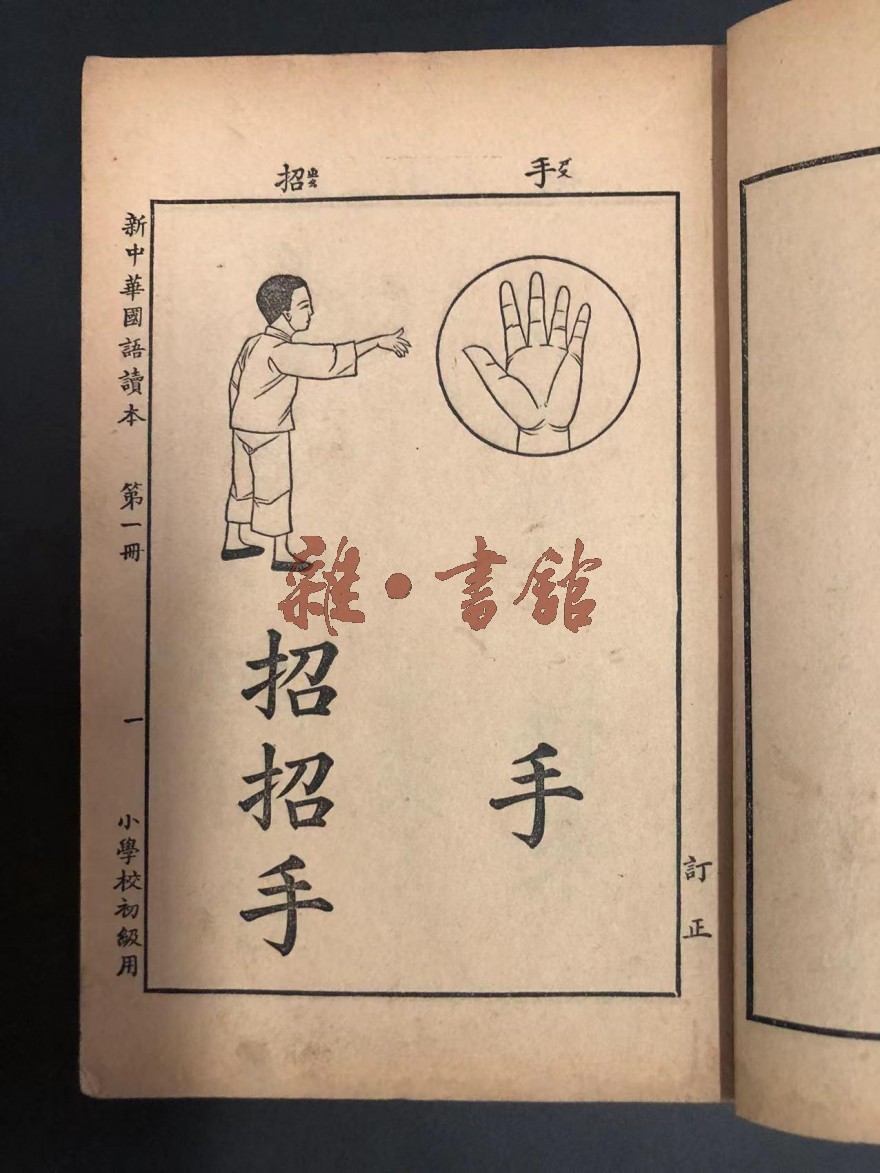 手ㄕㄡ
招ㄓㄠ
手
招招手
訂正
新中華國語讀本 第一冊 一 小學校初級用
雜·書館